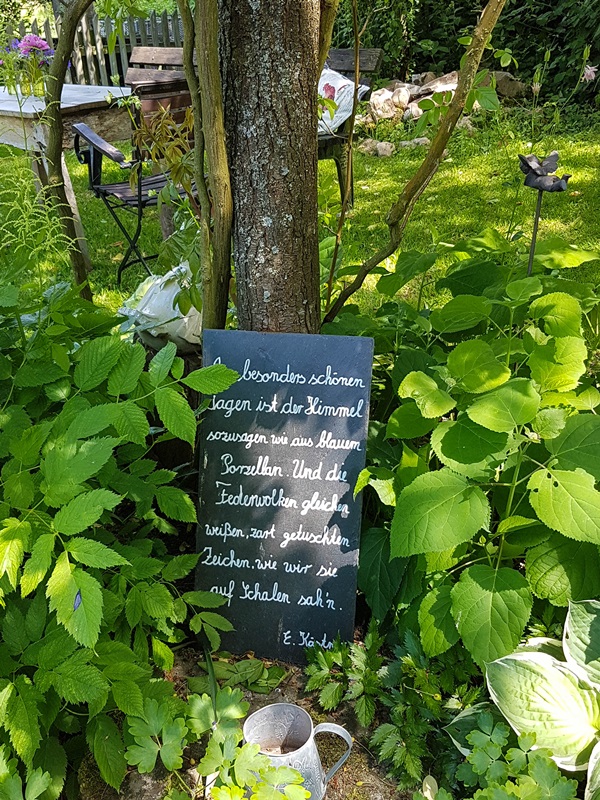 An besonders schönen
Tagen ist der Himmel
sozusagen wie aus blauem
Porzellan. Und die
Federwolken gleichen
weißen, zart getuschten
Zeichen, wie wir sie
auf Schalen sah'n.
E. Kästn